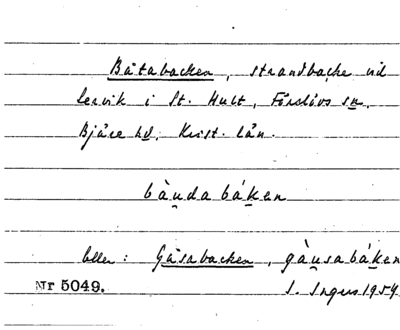 Båtabacken, strandbacke vid
lervik i St. Hult, Förslövs sn,
Bjäre hd, Krist. län.
bàu̱dabáḵen
eller: Gåsabacken, gàu̱sabáḵen
Nr 5049.
S. Ingers 1954.